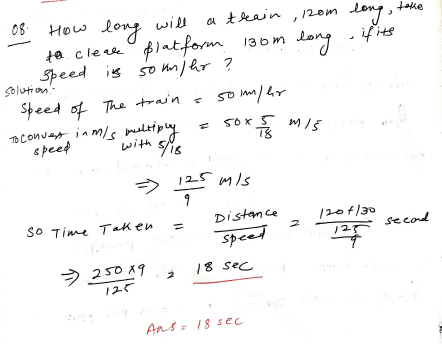 08. How long will a train, 120m long, take
to clear platform 130m long, if its
speed is 50 km/hr ?
Solution:-
Speed of The train = 50 km/hr
To convert in m/s multiply = 50 x 5/18 m/s
speed with 5/18
⇒ 125/9 m/s
So Time Taken = Distance/speed = 120+130/125/9 second
⇒ 250 x 9/125 = 18 sec
Ans = 18 sec